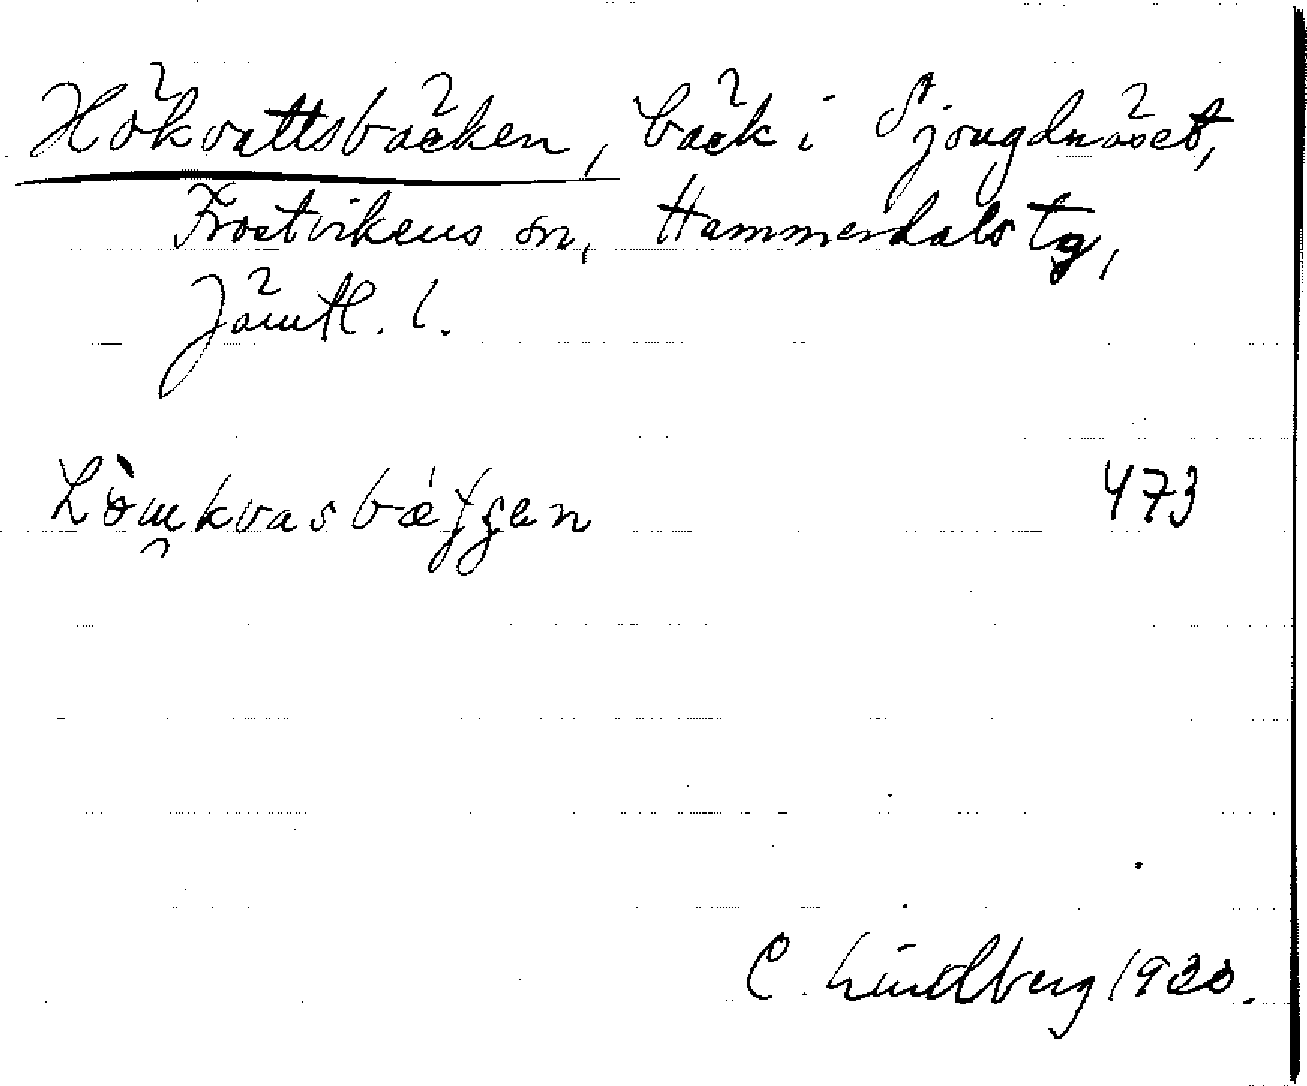 Hökvattsbäcken, bäck i Sjougdnäset,
Frostvikens sn, Hammerdals tg,
Jämtl. l.
473
C. Lindberg 1930.